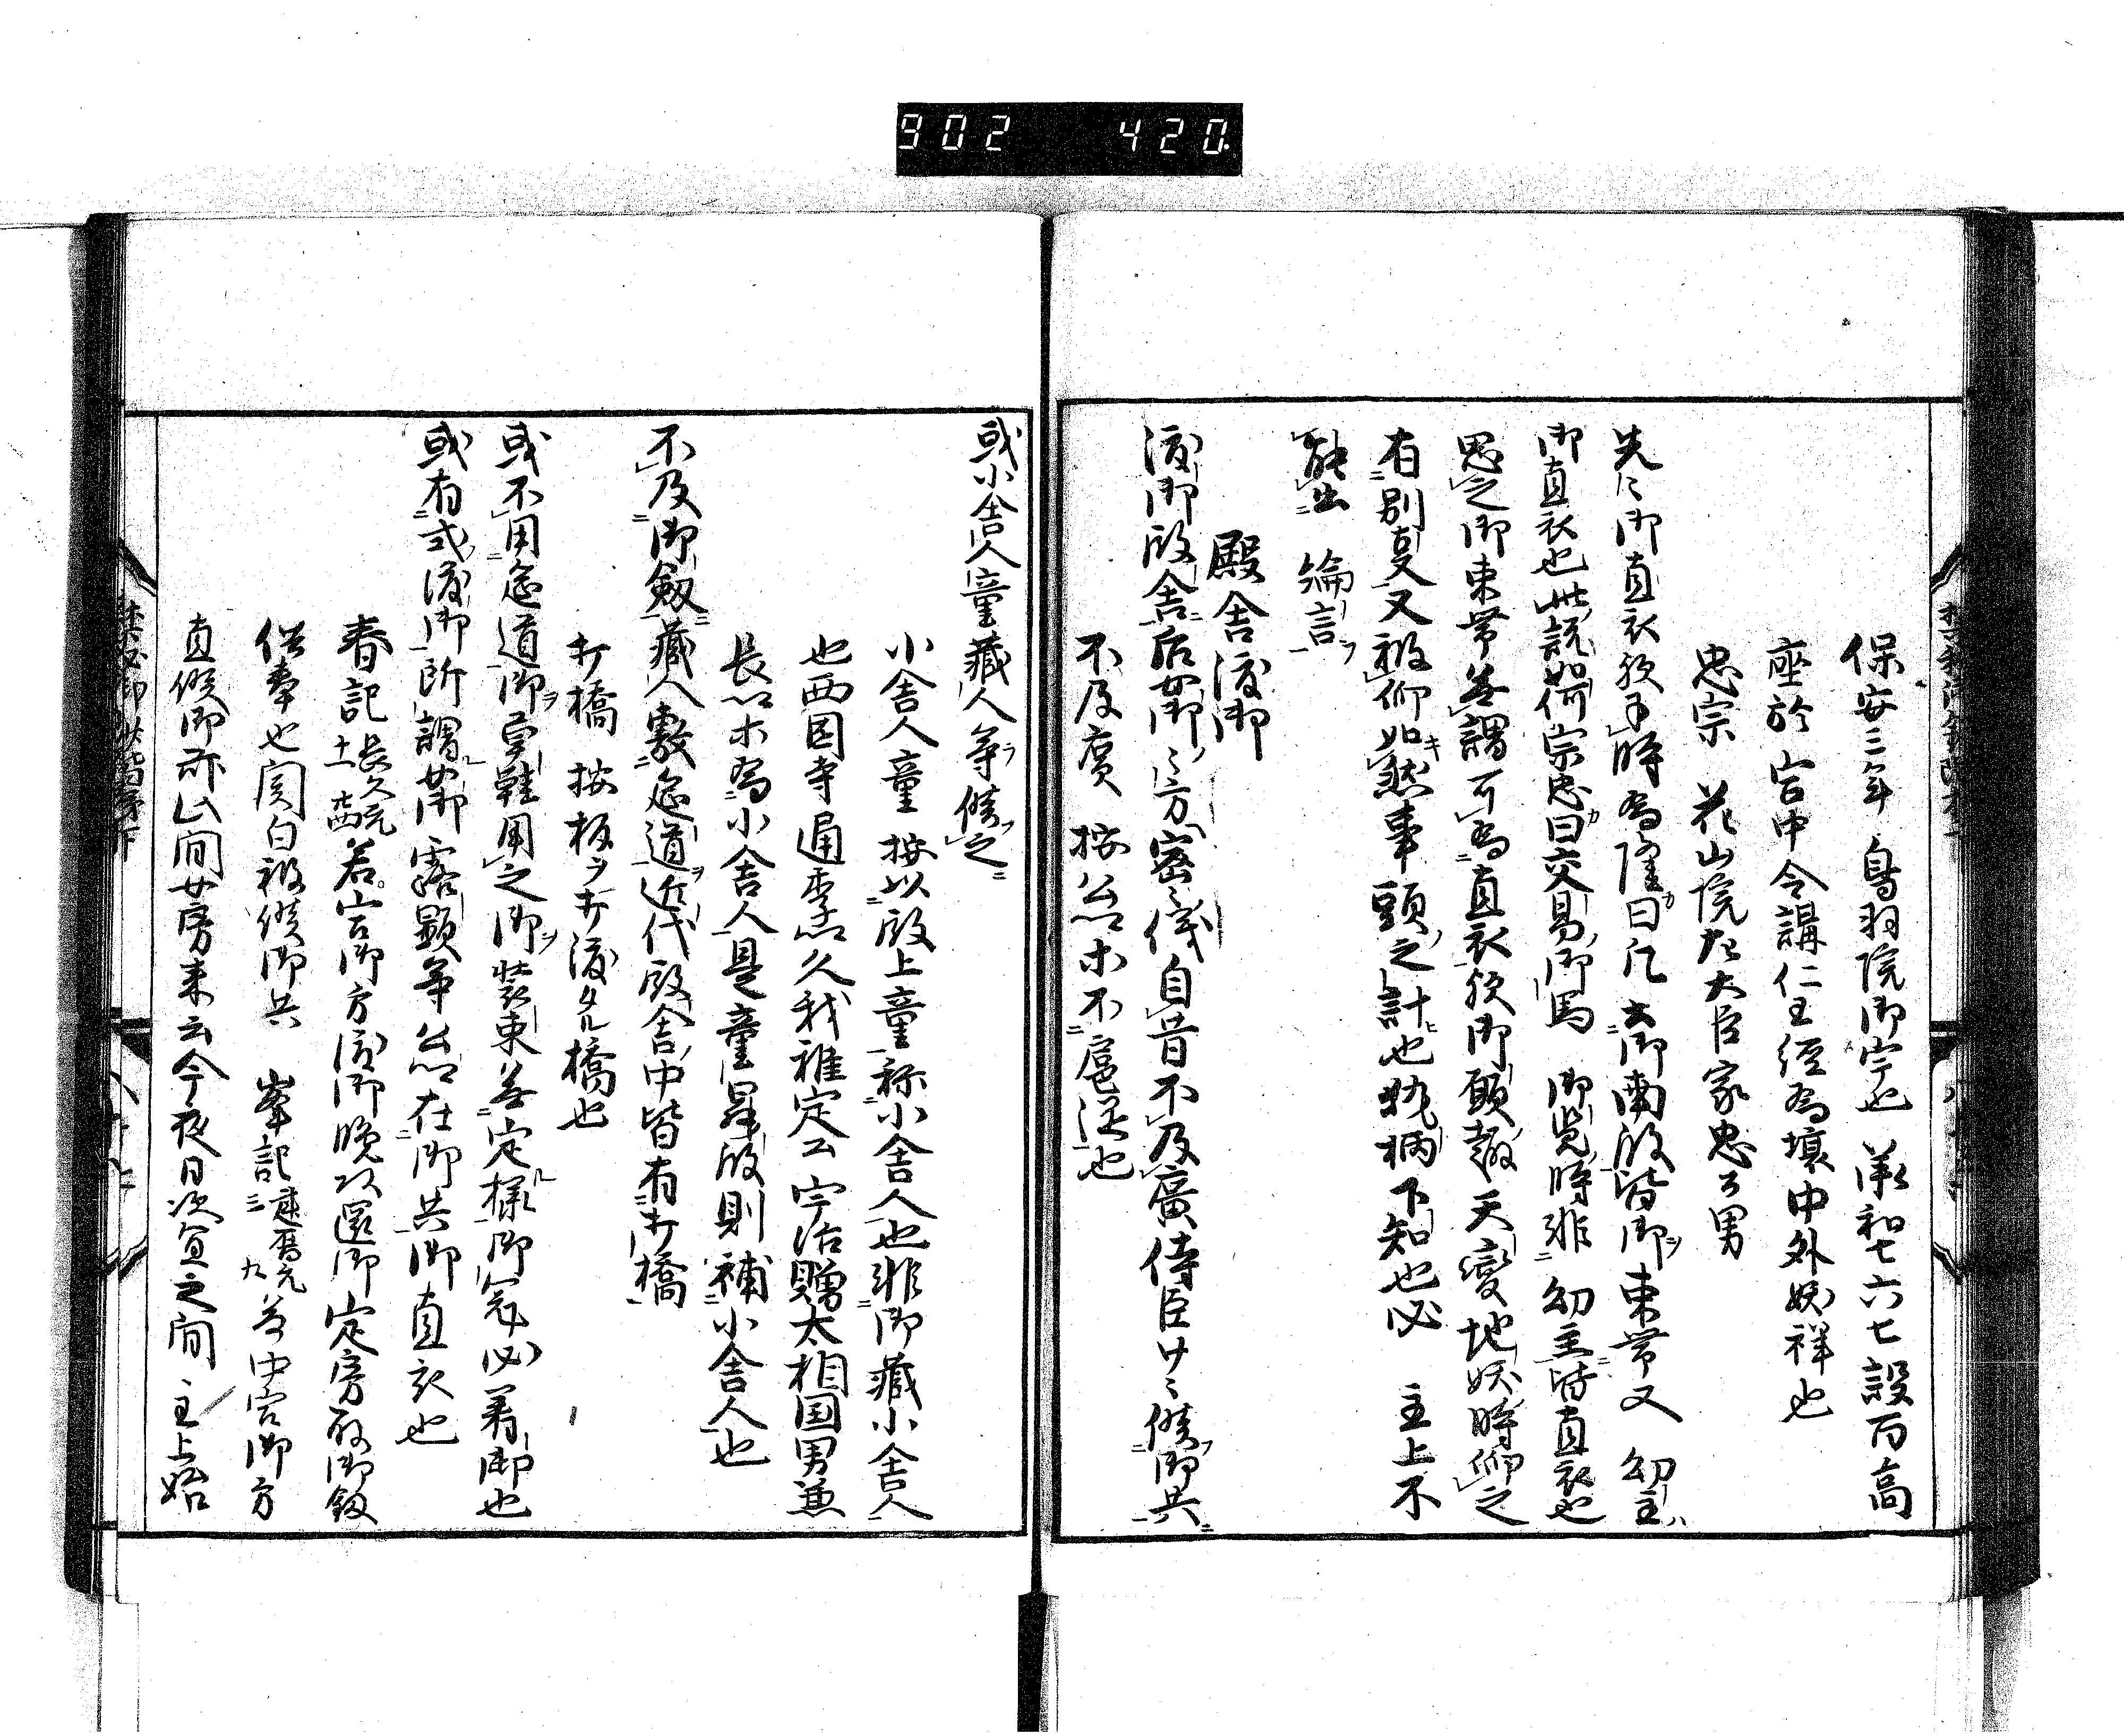 902 420
保安三年 鳥羽院御宇也 承和七六七設百高
座於 宮中令講仁王經為壞中外妖祥也
忠宗 花山院左大臣家忠公男
先々御直衣欤予時為隆曰凡出御南殿皆御束帶又 幼主
御直衣也此説如何宗忠曰交易御馬 御覧時非幼主皆直衣也
思之御束帶無謂可為直衣欤御願趣天變地妖時仰之
有別夏又被仰如然事頭之計也執柄下知也必 主上不
能出 綸言
殿舍渡御
渡御殿舍后女御之方密儀自昔不及廣侍臣廿々候御共
不及廣 按公卿不扈從也
或小舍人童藏人等候之
小舍人童 按以殿上童称小舍人也非御藏小舍人
也西園寺通季公久我雅定公宇治贈太相国男兼
長公等為小舍人是童昇殿則補小舍人也
不及御劔藏人敷筵道近代殿舍中皆有打橋
打橋 按板ヲ打渡タル橋也
或不用筵道御草鞋用之御装束無定様御冠必着御也
或有式渡御所謂女御露顯等公卿在御共御直衣也
春記 長久元 十一 廿四 若宮御方渡御晩頭還御定房取御釼
供奉也関白被候御共 峯記 延喜元 三 九 並中宮御方
直候御所此間女房来云今夜日次宜之間 主上始